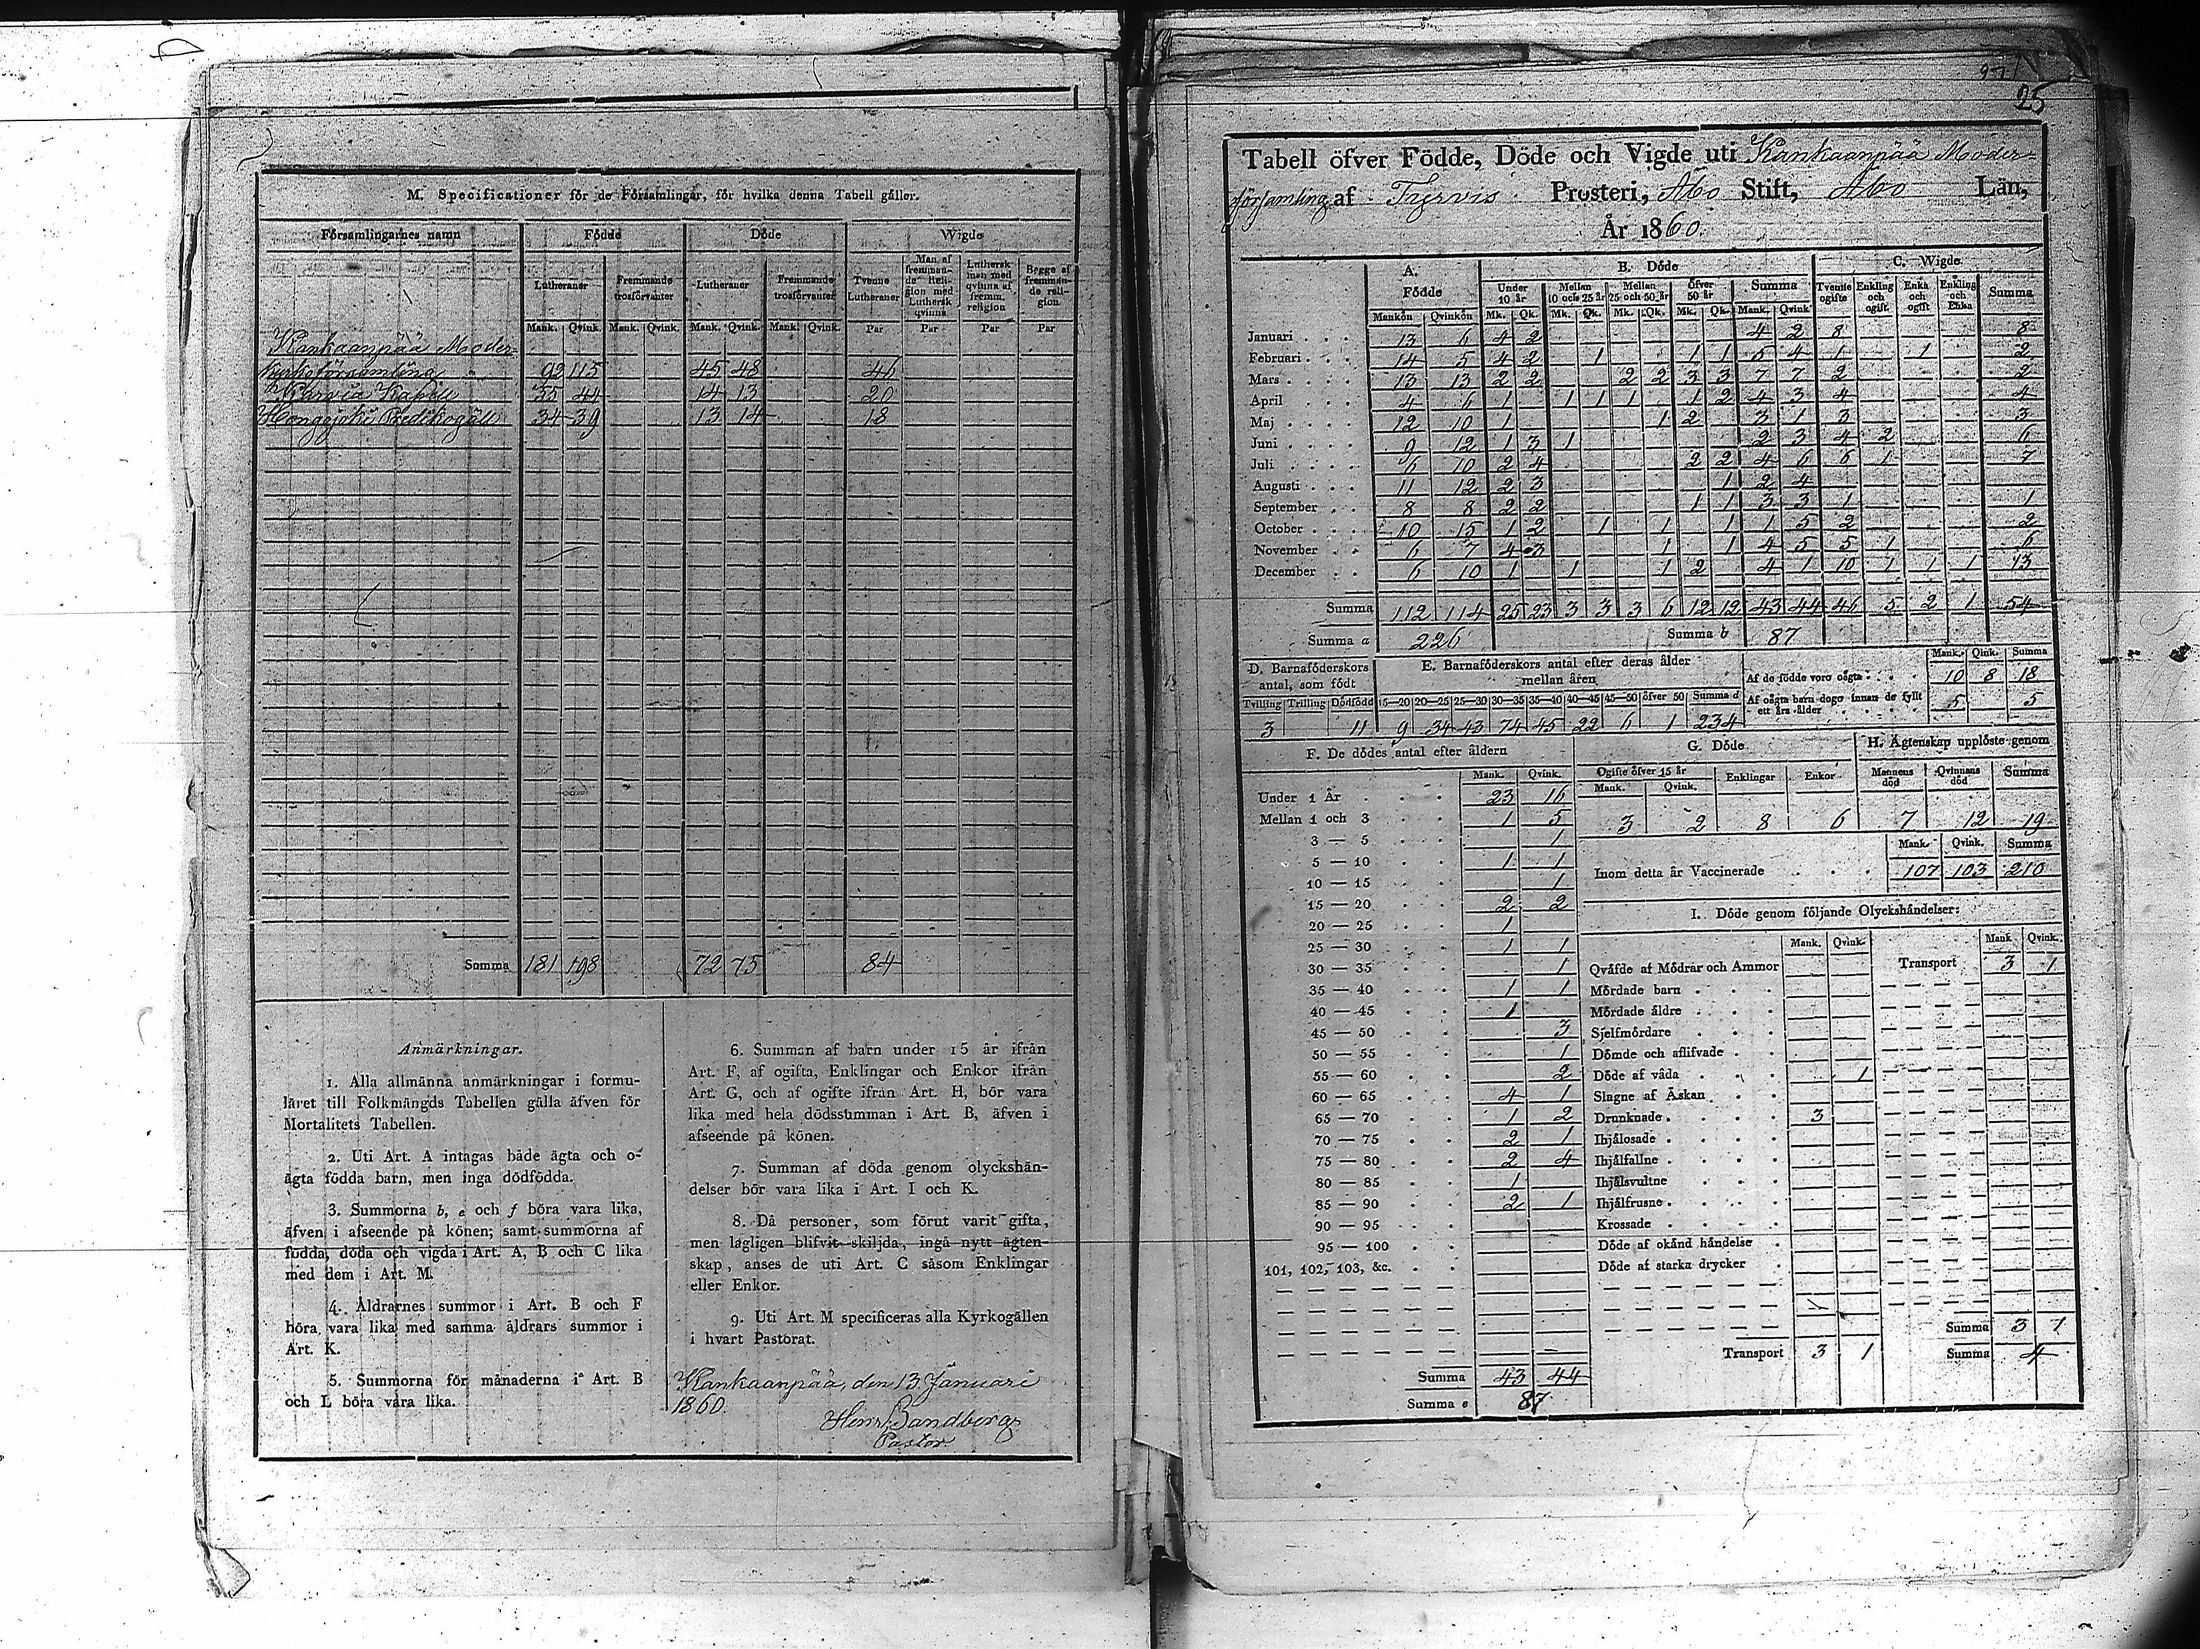 M. Specificationer för de Församlingar, för hvilka denna Tabell gäller.
Församlingarnes namn Födde Döde Wigde
Lutheraner Fremmande trosförvanter Lutheraner Fremmande trosförvanter Tvenne Lutheraner Man af fremmande Religion med Luthersk qvinna Luthersk man med qvinna af fremm. religion Begge af fremmande religion
Mank. Qvink. Mank. Qvink. Mank. Qvink. Mank. Qvink. Par Par Par Par
Kankaanpää Moder-
kyrkoförsamling 92 115 45 48 46
Karvia Kapell 55 44 14 13 20
Honggjoki Predikogäll 34 39 13 14 18
Summa 181 198 72 75 84
Anmärkningar.
1. Alla allmänna anmärkningar i formu-
läret till Folkmängds Tabellen gälla äfven för
Mortalitets Tabellen.
2. Uti Art. A intagas både ägta och o-
ägta födda barn, men inga dödfödda.
3. Summorna b, e och f böra vara lika,
äfven i afseende på könen; samt summorna af
födda, döda och vigda i Art. A, B och C lika
med dem i Art. M.
4. Åldrarnes summor i Art. B och F
böra vara lika med samma åldrars summor i
Art. K.
5. Summorna för månaderna i Art. B
och L böra vara lika.
6. Summan af barn under 15 år ifrån
Art. F, af ogifta, Enklingar och Enkor ifrån
Art. G, och af ogifte ifrån Art. H, bör vara
lika med hela dödssumman i Art. B, äfven i
afseende på könen.
7. Summan af döda genom olyckshän-
delser bör vara lika i Art. I och K.
8. Då personer, som förut varit gifta,
men lagligen blifvit skiljda, ingå nytt ägten-
skap, anses de uti Art. C såsom Enklingar
eller Enkor.
9. Uti Art. M specificeras alla Kyrkogällen
i hvart Pastorat.
Kankaanpää, den 13 Januari
1860.
Henr. Sandberg
Pastor
25
Tabell öfver Födde, Döde och Vigde uti Kankaanpää Moder-
församling af Tyrvis Prosteri, Åbo Stift, Åbo Län,
År 1860.
A. Födde B. Döde C. Wigde
Under 10 år Mellan 10 och 25 år Mellan 25 och 50 år Öfver 50 år Summa Tvenne ogifte Enkling och ogift Enka och ogift Enkling och Enka Summa
Mankön Qvinkön Mk. Qk. Mk. Qk. Mk. Qk. Mk. Qk. Mank. Qvink.
Januari 13 6 4 2 4 2 8 8
Februari 14 5 4 2 1 1 1 5 4 1 1 2
Mars 13 13 2 2 2 2 3 3 7 7 2 2
April 4 6 1 1 1 1 1 2 4 3 4 4
Maj 12 10 1 1 2 3 1 3 3
Juni 9 12 1 3 1 2 3 4 2 6
Juli 6 10 2 4 2 2 4 6 6 1 7
Augusti 11 12 2 3 1 2 4
September 8 8 2 2 1 1 3 3 1 1
October 10 15 1 2 1 1 1 1 5 2 2
November 6 7 4 3 1 1 4 5 5 1 6
December 6 10 1 1 1 2 4 1 10 1 1 1 13
Summa 112 114 25 23 3 3 3 6 12 12 43 44 46 5 2 1 54
Summa a 226 Summa b 87
D. Barnaföderskors antal, som födt
Tvilling Trilling Dödfödd
3 11
E. Barnaföderskors antal efter deras ålder mellan åren
15—20 20—25 25—30 30—35 35—40 40—45 45—50 öfver 50 Summa d
9 34 43 74 45 22 6 1 234
Mank. Qink. Summa
Af de födde voro oägta 10 8 18
Af oägta barn dogo innan de fyllt ett års ålder 5 5
F. De dödes antal efter åldern
Mank. Qvink.
Under 1 År 23 16
Mellan 1 och 3 1 5
3 — 5 1
5 — 10 1 1
10 — 15 1
15 — 20 2 2
20 — 25 1
25 — 30 1 1
30 — 35 1
35 — 40 1 1
40 — 45 1
45 — 50 3
50 — 55 1
55 — 60 2
60 — 65 4 1
65 — 70 1 2
70 — 75 2 1
75 — 80 2 4
80 — 85 1
85 — 90 2 1
90 — 95
95 — 100
101, 102, 103, &c.
Summa 43 44
Summa e 87
G. Döde
Ogifte öfver 15 år Enklingar Enkor
Mank. Qvink.
3 2 8 6
H. Ägtenskap upplöste genom
Mannens död Qvinnans död Summa
7 12 19
Mank. Qvink. Summa
Inom detta år Vaccinerade 107 103 210
I. Döde genom följande Olyckshändelser:
Mank. Qvink. Mank. Qvink.
Qväfde af Mödrar och Ammor Transport 3 1
Mördade barn
Mördade äldre
Sjelfmördare
Dömde och aflifvade
Döde af våda 1
Slagne af Åskan
Drunknade 3
Ihjälosade
Ihjälfallne
Ihjälsvultne
Ihjälfrusne
Krossade
Döde af okänd händelse
Döde af starka drycker
Summa 3 1
Transport 3 1 Summa 4